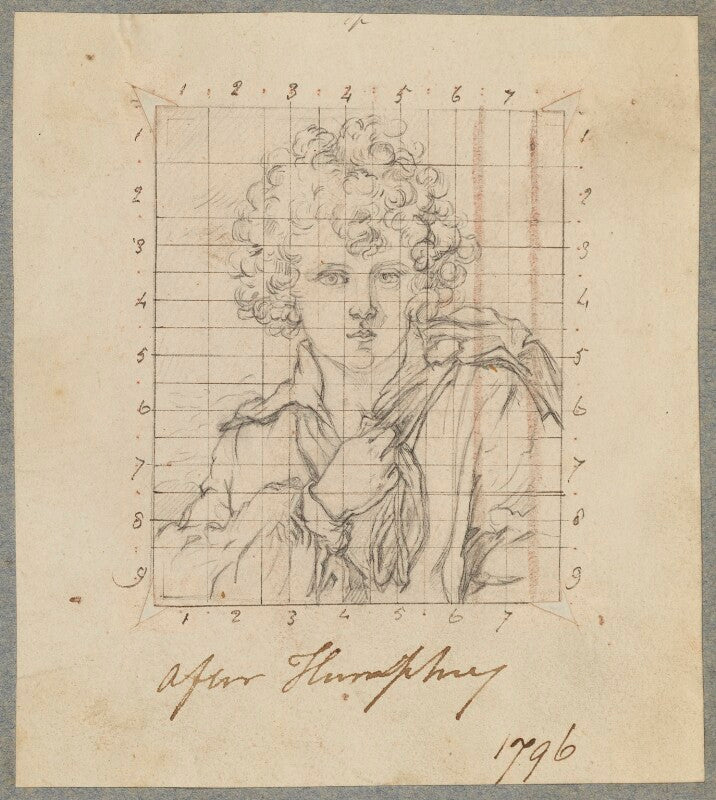 1 2 3 4 5 6 7
1 1
2 2
3 3
4 4
5 5
6 6
7 7
8 8
9 9
1 2 3 4 5 6 7
after Humphrey
1796